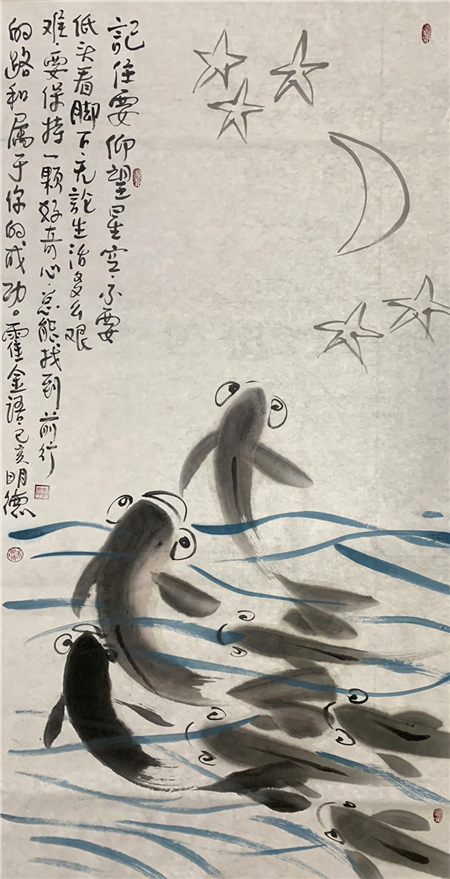 記住要仰望星空·不要
低头看脚下无論生活多么艰
难·要保持一颗好奇心·总能找到前行
的路和属于你的成功。霍金語·己亥明德